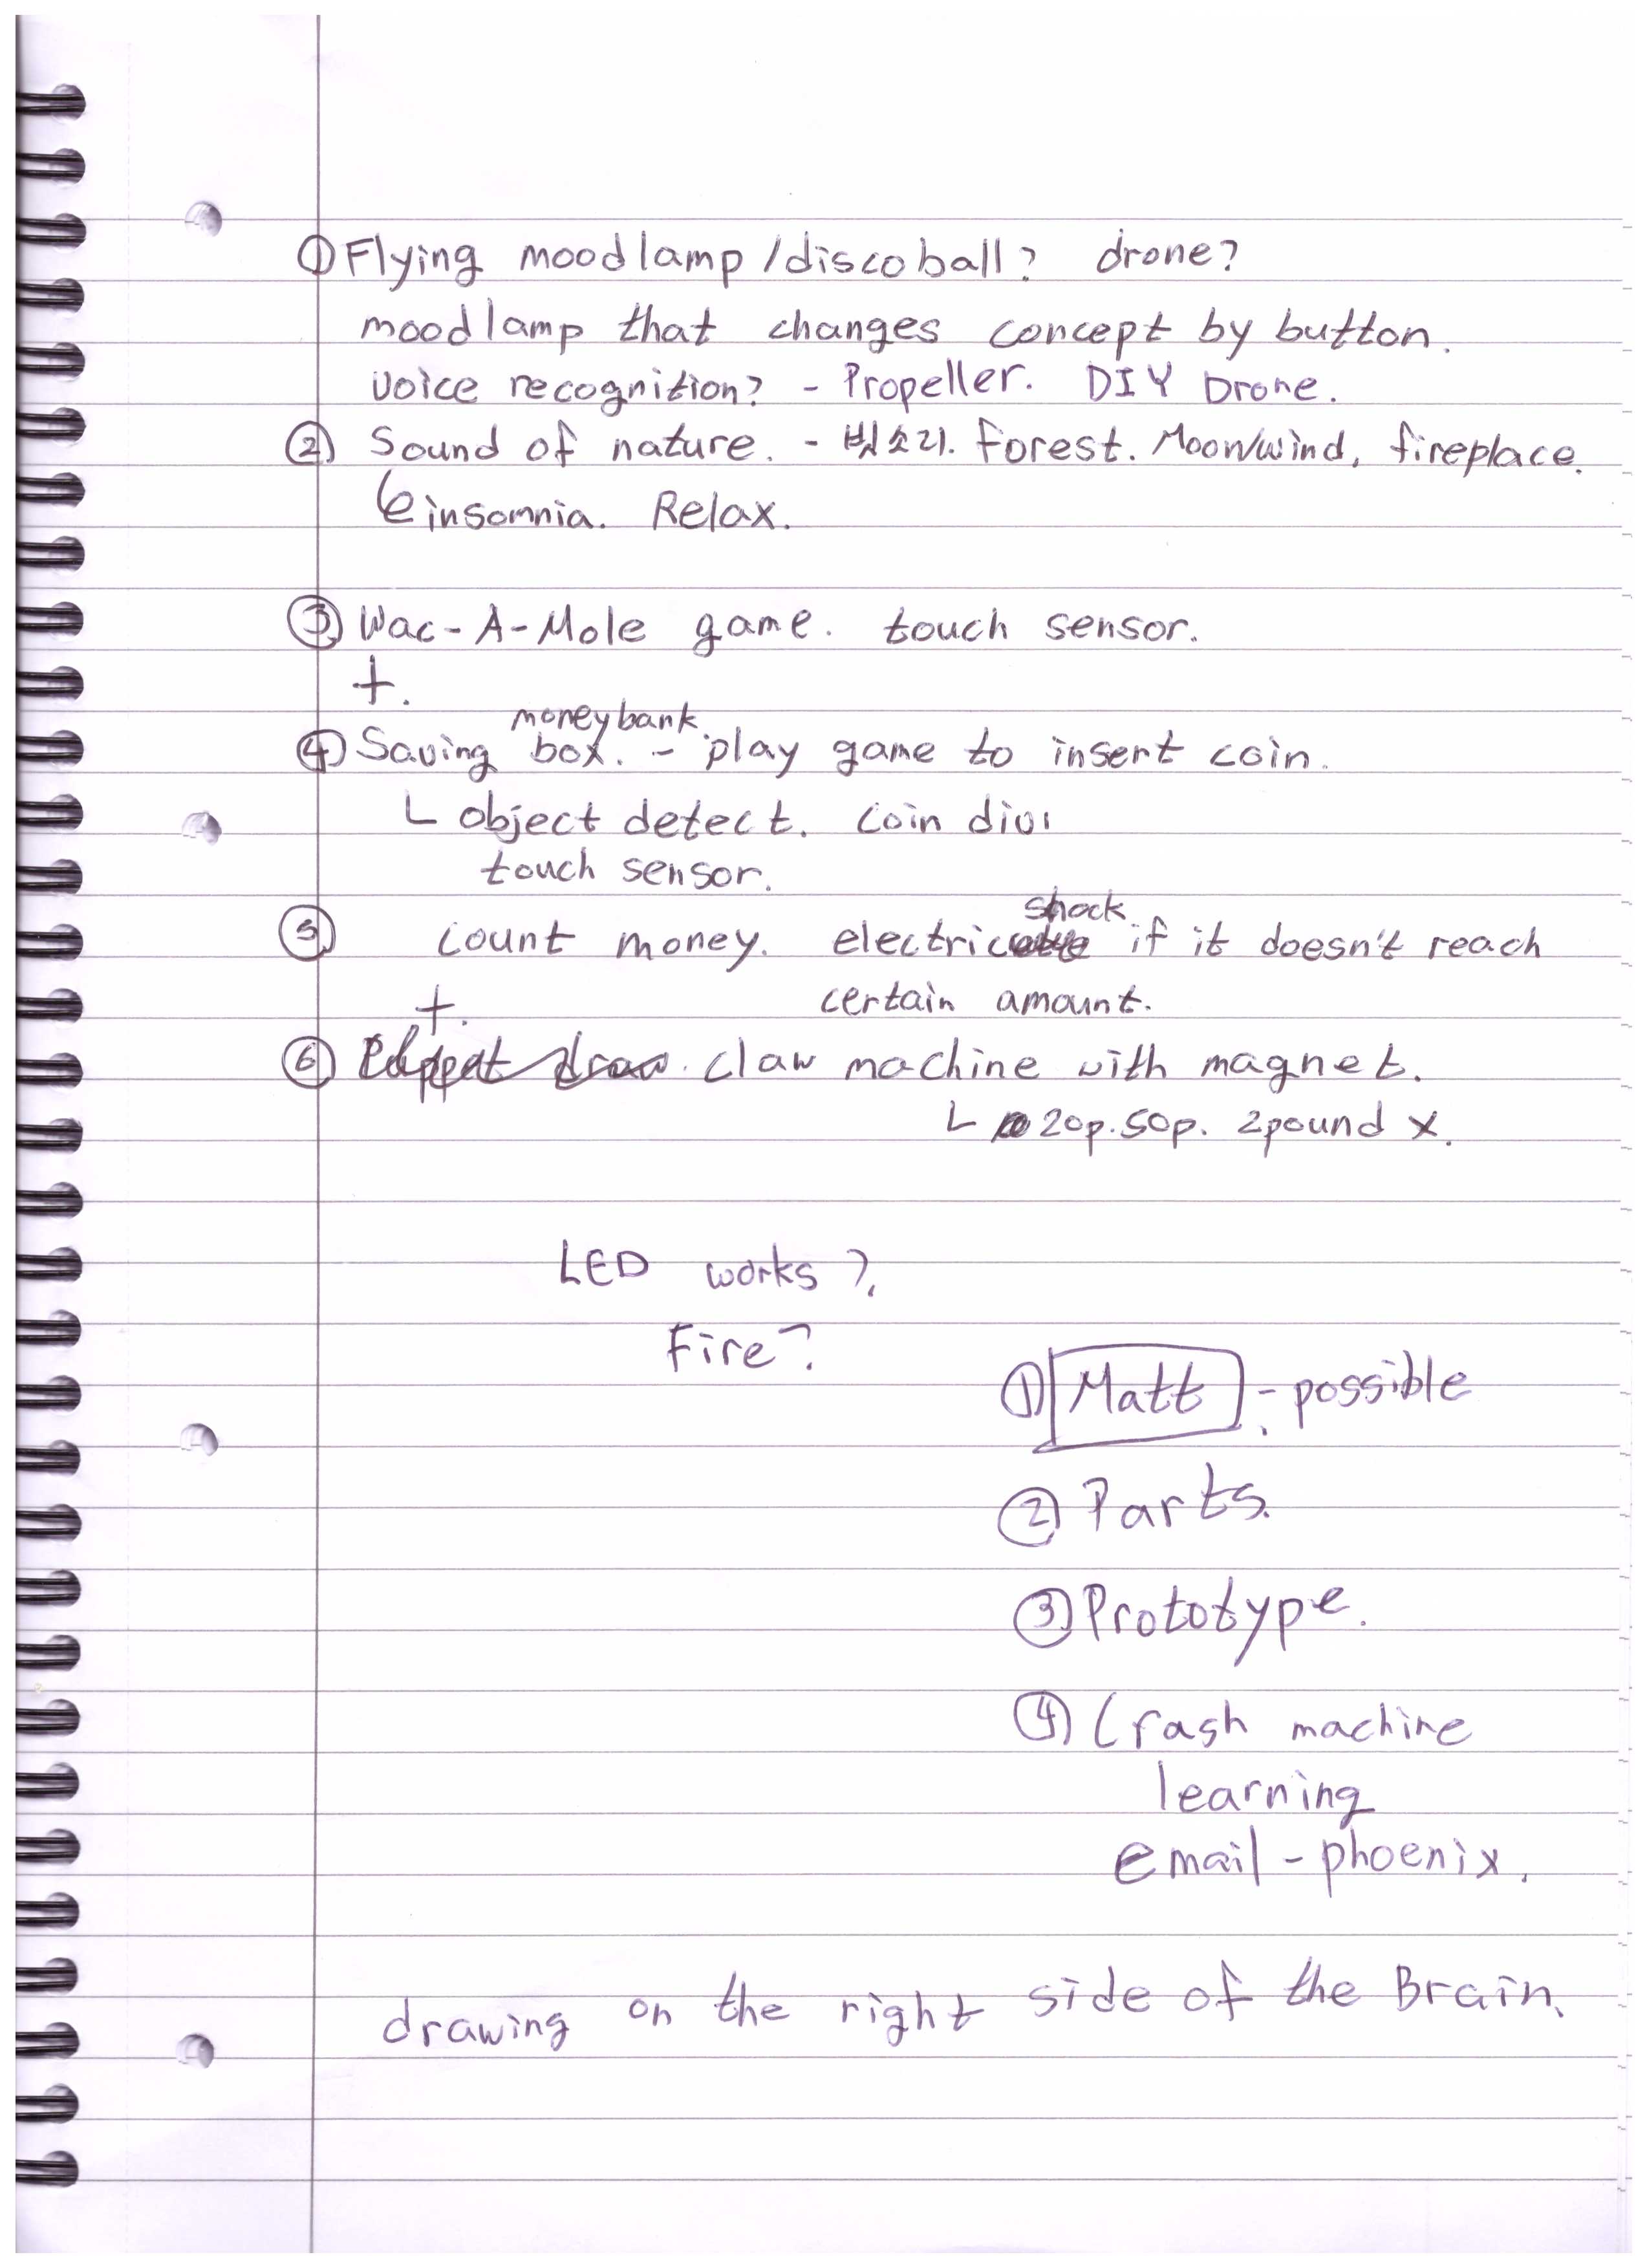 ① Flying moodlamp/discoball? drone?
moodlamp that changes concept by button.
voice recognition? - Propeller. DIY Drone.
② Sound of nature. - 빗소리. Forest. Moon/wind, fireplace.
insomnia. Relax.
③ Wac-A-Mole game. touch sensor.
+.
moneybank.
④ Saving box. - play game to insert coin.
└ object detect. coin divi
touch sensor.
shock
⑤ count money. electric if it doesn't reach
+. certain amount.
⑥ claw machine with magnet.
└ 20p. 50p. 2pound x.
LED works?
Fire?
① Matt - possible
② Parts.
③ Prototype.
④ Crash machine
learning
email - phoenix.
drawing on the right side of the Brain.